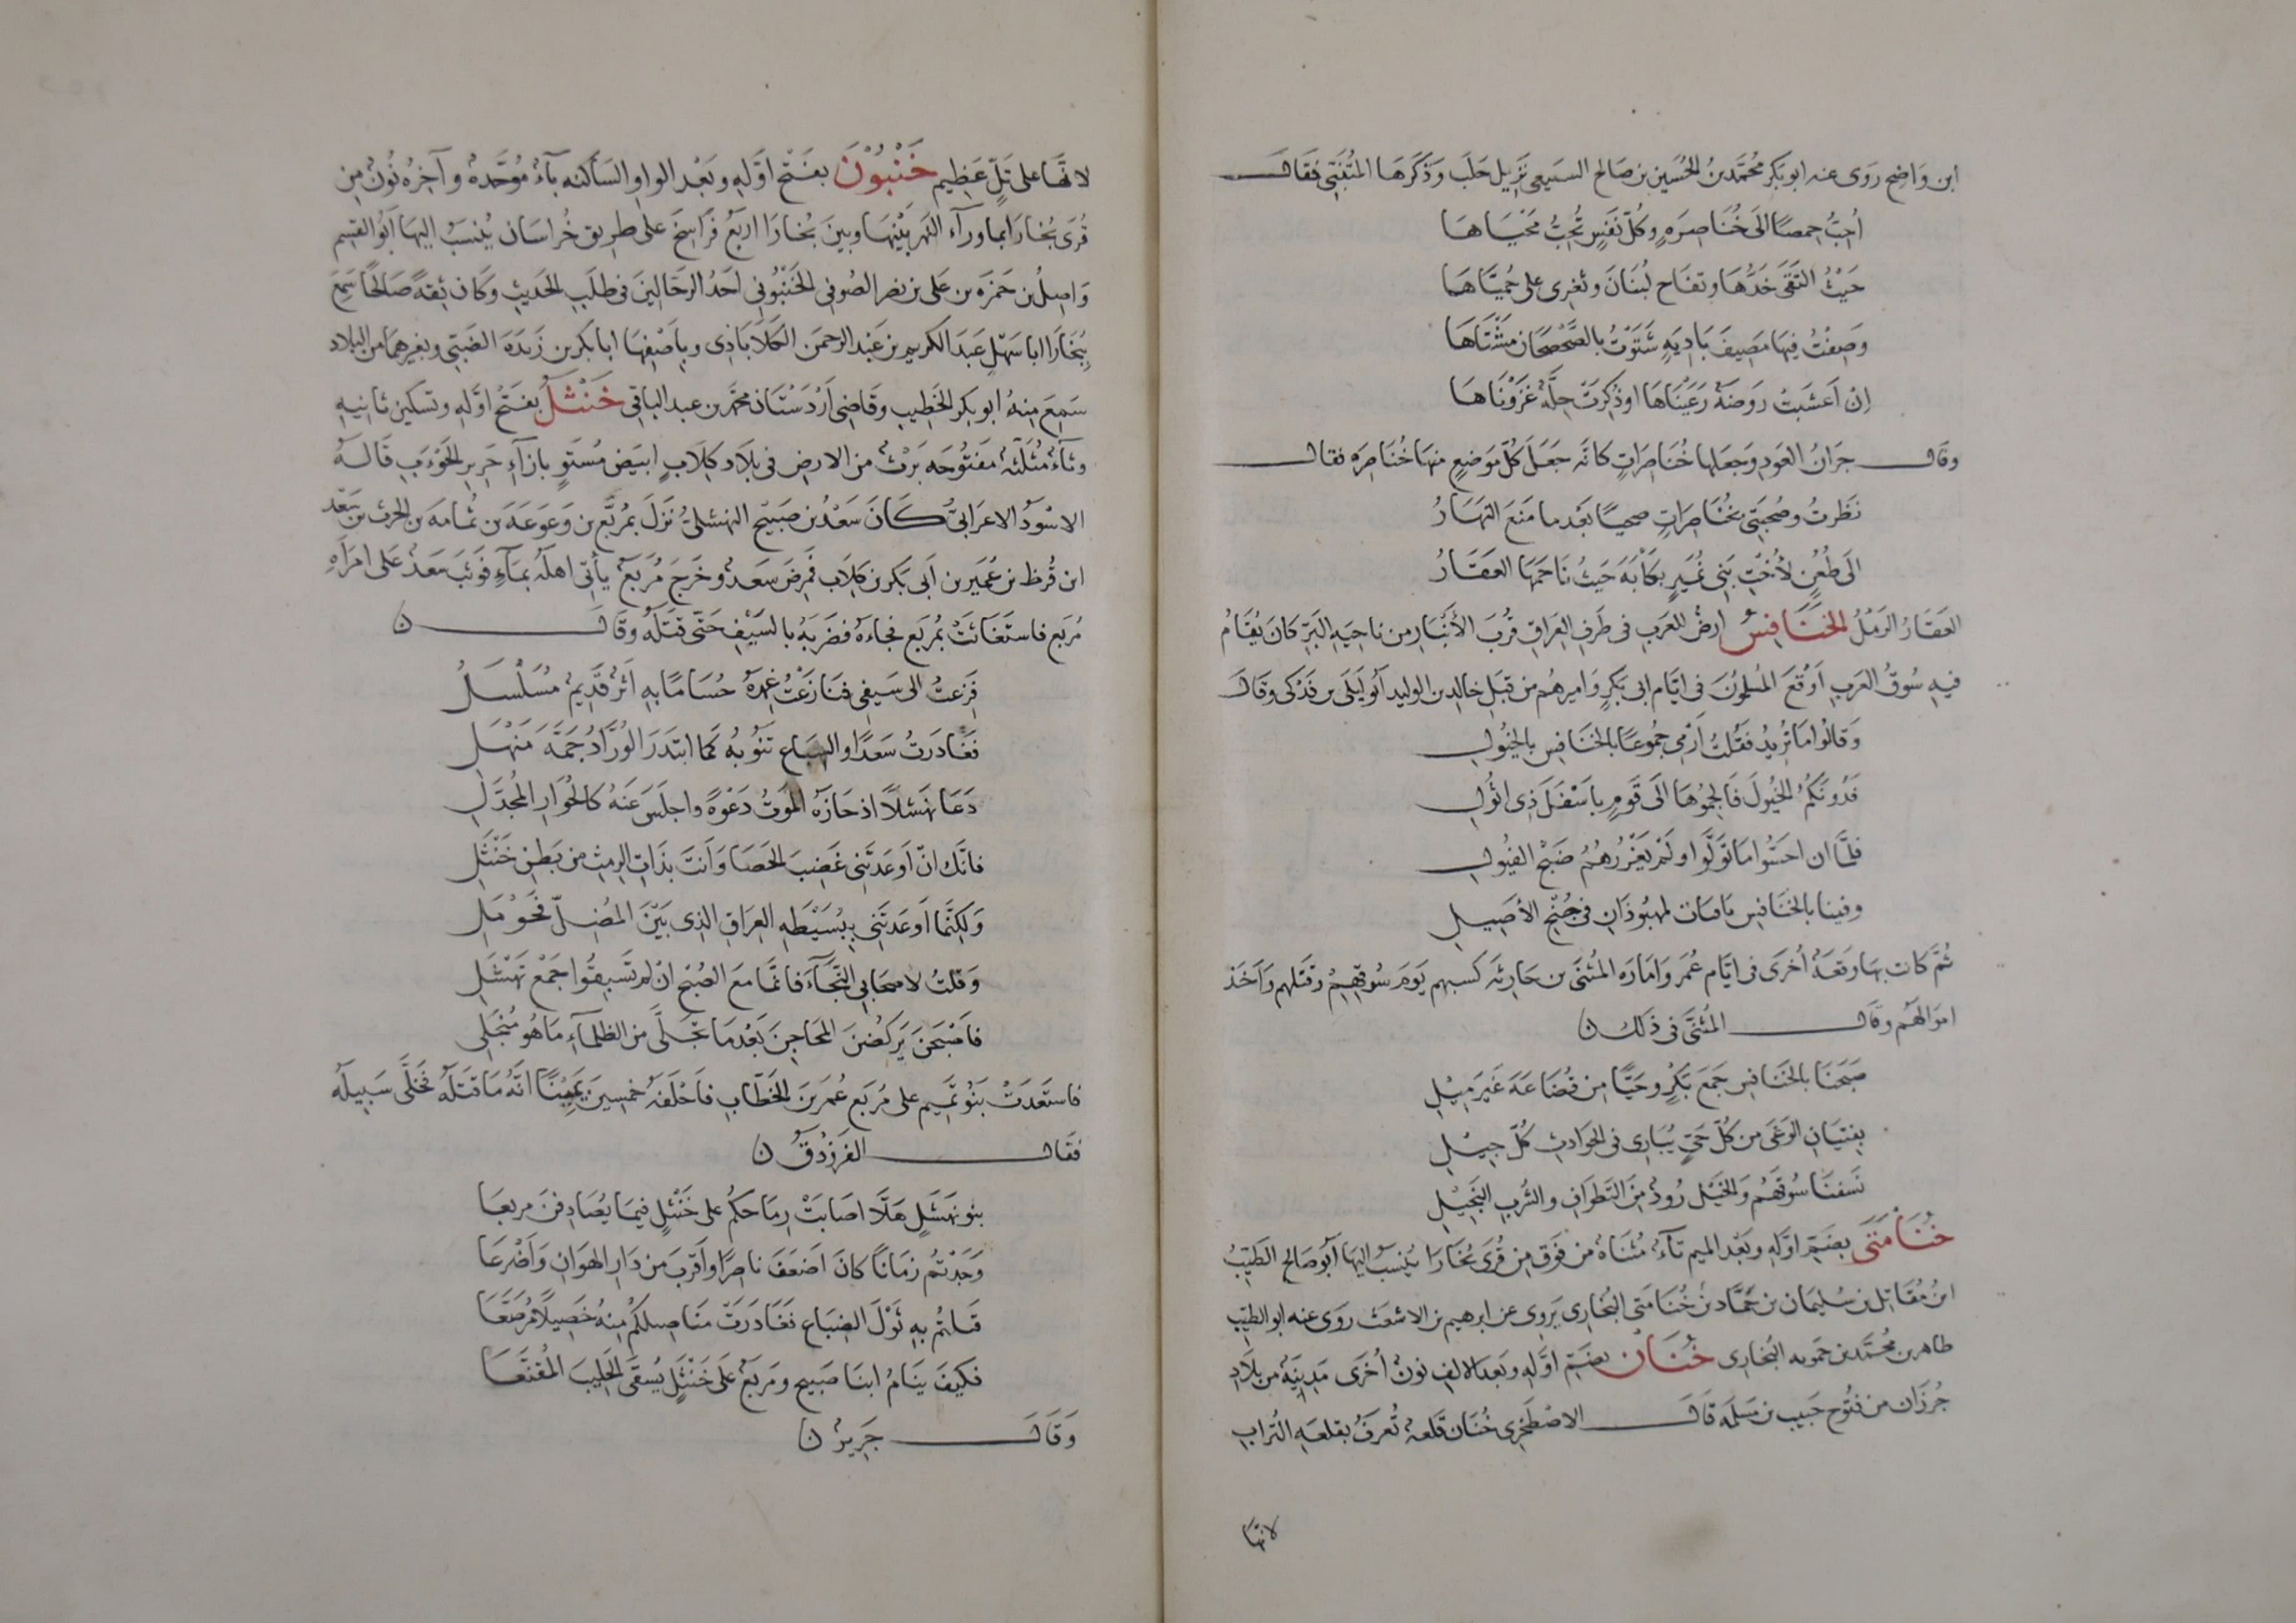 ابن وَاضِح روَى عنه ابو بَكر مُحَمَّد بنُ الحُسَين بن صَالح السَبيعى نَزيل حَلَب وَذَكَرهَا المتَنَبّى فقَالَ
اُحِبُّ حِمصًا الىَ خُنَاصِرَةٍ وكُلّ نَفسٍ تُحِبُّ مَحْيَاهَا
حَيْثُ التَقىَ خَدُّهَا وتفاح لُبنَانَ وثَغرِى على حُمَيَّاهَا
وصِفْتُ فيهَا مَصِيفَ بَادِيَةٍ شَتَوْتُ بالصَّحْصَحَانِ مَشْتَاهَا
اِنْ اَعشَبَتْ رَوضَةٌ رَعَيْنَاهَا اَوذُكِرَتْ حِلَّةٌ غَزَوْنَاهَا
وقال جرَانُ العَودِ وَجعَلها خُنَاصِرَاتٍ كانّه جعَلَ كلّ مَوضعٍ منهَا خُنَاصِرَه فقال
نَظَرتُ وصُحبَتِى بخُنَاصِرَاتٍ ضحيًا بَعْدما مَتَعَ النَهَارُ
الىَ ظُعُنٍ لأُخْتِ بَنِى نُمَيرٍ بكَابَةَ حَيثُ زَاحَمَهَا العَقَارُ
العَقَارُ الرَملُ الخَنَافِسُ ارضٌ للعَرب فى طَرفِ العِراقِ قُربَ الأنبَارِ من ناحِيَةِ البَرّ كانَ يُقَامُ
فيهِ سُوقٌ العَرب اَوْقعَ المُسلمونَ فى ايّام ابى بَكرٍ وَاميرهُم من قبَلِ خالد بن الوليد اَبُو لَيْلَى بن فَدْكى وقَال
وَقالُوا مَا تُريدُ فقُلتُ اَرْمى جُموعًا بالخنَافِسِ بالخيُولِ
فَدُونَكمُ الخيُولَ فَاَلجِمُوهَا الىَ قَومٍ باَسْفَلَ ذِى اثُولِ
فلمَّا ان احَسُّوا مَا تَوَلَّوا ولَمْ يَغرُرهُمُ ضَبْحُ الفيُولِ
وفِينا بالخنَافسِ باقياتٌ لمهبُوذَانِ فى جُنْحِ الأصَيلِ
ثمَّ كانت بهَا وقعَةٌ أُخرَى فى ايّام عُمَر وَامَارَةِ المُثنىَّ بن حَارِثَة كبسهم يَومَ سُوقِهِمْ وَقَتَلهم وَاَخَذ
اموَالهُم وقَال المُثنىَّ فى ذلك ن
صَبَحنَا بالخنَافسِ جَمعَ بَكرٍ وحَيًّا مِن قُضَاعَةَ غَيرَ مِيْلِ
بفِتيَانِ الوَغى من كلّ حَىّ يُبَارِى فى الحَوادِثِ كُلّ جِيْلِ
نَسَفنَا سُوقَهُم وَالخَيْل رُودٌ مِنَ التَطوَافِ والشربِ البَخَيْلِ
خُنَامَتَى بضَمّ اوّلهِ وبَعْد الميم تآءٌ مُثنَاةٌ من فَوق مِن قُرَى بُخَارَا يُنسَبُ اليهَا اَبُو صَالح الطَيِّبُ
ابنُ مُقَاتِل بن سُليمَان بن حَمَّاد بن خُنَامَتى البُخَارِى يَروِى عن ابرهيم بن الاشعَث روَى عنه ابو الطيّب
طاهر بن مُحمَّد بن حمويه البُخارِى خُنَان بضَمّ اوّلهِ وبَعد الالِف نونٌ أُخرَى مَدِينَةٌ من بلَادِ
جُرزَان من فتُوح حَبيب بن مَسلَمَه قَال الاصْطَخرى خُنَان قَلعةٌ تُعرَفُ بقلعَةِ التُرابِ
لانهَّا
لانهَّا على تَلّ عَظِيم خَنْبُوْنَ بفَتْح اوّلهِ وبَعْد الواو السَاكنه بآءٌ مُوَحَّدةٌ وآخِرُه نُونٌ مِن
قُرَى بُخارَا بما ورآء النَهر بَيْنَهَا وبَينَ بُخارَا اربَعُ فَراسِخَ على طرِيق خُراسَان يُنسَبُ اليهَا اَبُو القسِم
وَاصِلُ بن حَمزَه بن على بن نصر الصُوفى الخَنْبُونى احَدُ الرحَالينَ فى طلَبِ الحَديثِ وكَانَ ثِقةً صَالحًا سَمِعَ
بِبُخَارَا ابا سَهْلٍ عَبدَ الكرِيم بن عَبْد الرحمن الكَلاَبَاذِى وبِاصْفهَا ابا بكر بن زَيدَة الضَبّى وبغيرهمَا من البِلاد
سَمِعَ مِنهُ ابو بكر الخَطيب وقَاضِى اَرْدَسْتَان محمّد بن عبد الباقى خَنْثَلُ بفَتْحُ اوّلهِ وتسكين ثانِيهِ
وثآءٌ مُثلّثَهٌ مَفتُوحَه بَرْثٌ من الارضِ فى بلَاد كِلَابٍ ابيَض مُسْتَوٍ بازَآءِ حَريز الحَوْءَبِ قَالهُ
الاسْوَدُ الاعرَابىُّ كَانَ سَعْدُ بن صَبيْح النهشلىُّ نَزَلَ بمُرَبَّع بن وَعوَعَة بن ثُمَامة بن الحرث بن سَعْد
ابن قُرظ بن عُمَيرِ بن اَبى بَكر بن كِلاَب فمرِضَ سَعدٌ وخَرجَ مُربَعٌ يأتى اهلهُ بمآءٍ فوَثبَ سَعدٌ عَلى امرَاةِ
مُربَع فاستَغاثتْ بمُربَع فجاءَهُ فضرَبَهُ بالسَيْفِ حَتّى قتَلهُ وقَال ن
فزِعتُ الى سَيفِى فنَازَعْتُ غِمْدَهُ حُسَامًا بهِ اَثرٌ قَديمٌ مُسَلْسَلُ
فغَادَرتُ سَعدًا والسِبَاع تَنُوبُهُ كما ابتدَرَ الوُرَّادُ جَمَّةَ مَنْهَلِ
دَعَا نَهشَلاً اذ حَازَهُ المَوتُ دَعْوَةً واجلسَ عَنهُ كالحُوَارِ المُجَدَّلِ
فانّكَ انْ اَوعَدتَّنِى غَضِبَ الحَصَا وَاَنتَ بذَاتِ الرِمثِ من بَطنِ خَنْثَلِ
وَلكِنَّمَا اَوعَدتَّنِى بِبُسَيْطَةِ العِراقِ الذِى بَيْنَ المُضِلّ فحَوْمَلِ
وَقلتُ لاصحَابى النجَآءَ فانّما مَعَ الصُبْحِ انْ لم تُسْبَقُوا جَمْعَ نَهْشَلِ
فاصْبَحنَ يَركُضْنَ المحَاجِنَ بَعْدمَا تجَلىَّ من الظلمآءِ مَا هُو مُنْجَلِى
فاستَعدَتْ بَنُو تَمِيم على مُربَع عُمَر بن الخَطّابِ فاَحْلفَهُ خمسِينَ يَمِيْنًا انّهُ مَا قتَلهُ فخَلّى سَبِيلَهُ
فقَال الفَرَزدقُ ن
بنو نَهْشَلٍ هَلَّا اصَابَتْ رِمَاحكُم على خَنْثَلٍ فيمَا يُصَادِفنَ مربعَا
وَجَدتُم زمَانًا كانَ اضعَفَ ناصِرًا واَقرَبَ من دَارِ الهَوَانِ وَاَضْرَعَا
قَتلتُم بهِ ثَوْلَ الضِبَاع فغَادَرَتْ مَناصِلكُمْ مِنهُ خَصِيلاً مُرَصَّعَا
فكيفَ يَنَامُ ابنَا صَبيح ومَربَعٌ علىَ خَنْثَلٍ يُسقىَ الحَلِيبَ المُقنَّعَا
وَقَالَ جَرِيرٌ ن